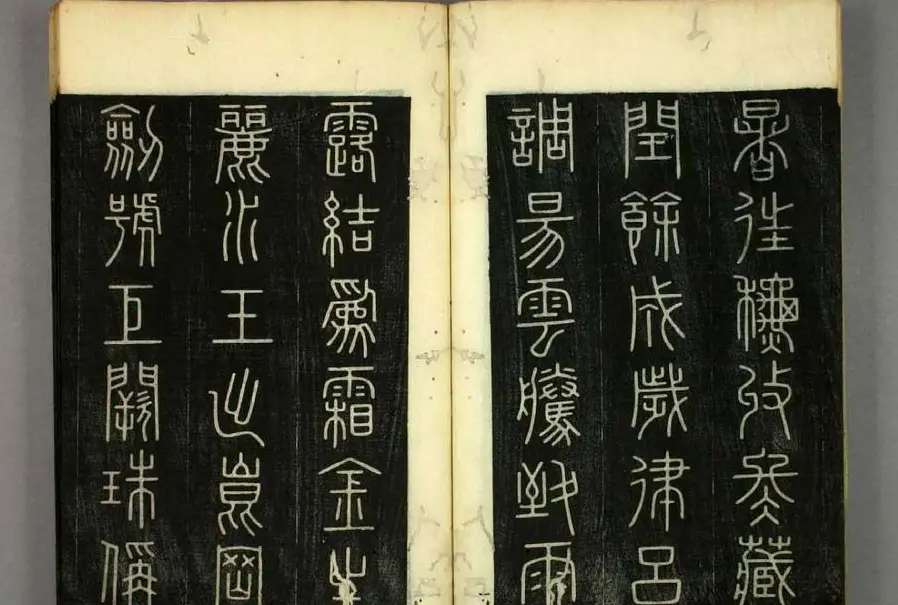 暑往龝收冬藏
閏餘成歲律呂
調昜雲騰致雨
露結爲霜金生
麗水玉出崑岡
劍號巨闕珠偁